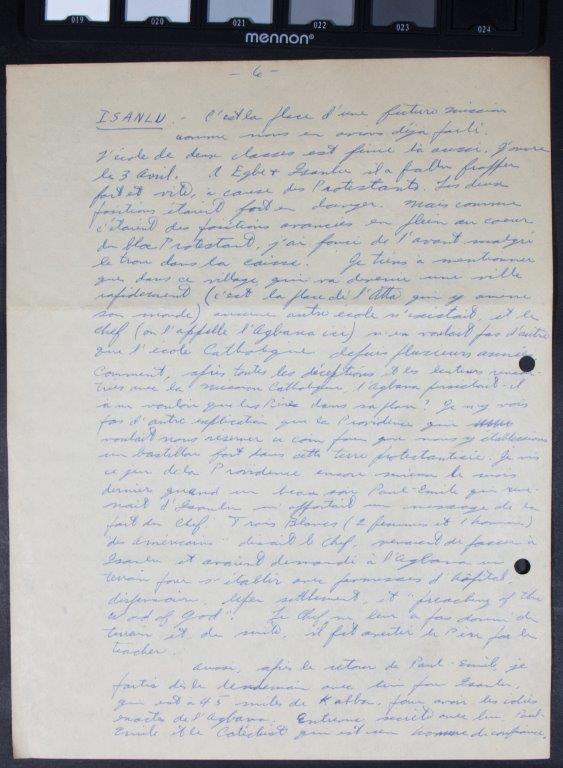 019 020 021 022 023 024
mennon®
- 6 -
ISANLU. - C'est la place d'une future mission
comme nous en avions déjà parlé.
L'école de deux classes est finie là aussi. J'ouvre
le 3 avril. A Egbe et Isanlu il a fallu frapper
fort et vite, à cause des Protestants. Les deux
positions étaient fort en danger. Mais comme
c'étaient des positions avancées en plein au coeur
du bloc Protestant, j'ai foncé de l'avant malgré
le trou dans la caisse. Je tiens à mentionner
que dans ce village, qui va devenir une ville
rapidement (c'est la place de l'Atta qui y amène
son monde) aucune autre école n'existait, et le
chef (on l'appelle l'Agbana ici) n'en voulait pas d'autre
que l'école Catholique depuis plusieurs années.
Comment, après toutes les déceptions et les lenteurs rencon-
trées avec la mission Catholique, l'Agbana persistait-il
à ne vouloir que les Pères dans sa place? Je n'y vois
pas d'autre explication que la Providence qui
voulait nous réserver ce coin pour que nous y établissions
un bastillon fort dans cette terre protestantisée. Je vis
ce jeu de la Providence encore mieux le mois
dernier quand un beau soir Paul-Emile qui reve-
nait d'Isanlu m'apportait un message de la
part du Chef. Trois Blancs (2 femmes et 1 homme)
"des américains" disait le Chef, venaient de passer à
Isanlu et avaient demandé à l'Agbana un
terrain pour s'établir avec promesses d'hôpital,
dispensaire, leper settlement, et "preaching of the
Word of God". Le Chef ne leur a pas donné de
terrain et de suite, il fit avertir le Père par le
teacher.
Aussi, après le retour de Paul-Emile, je
partis dès le lendemain avec lui pour Isanlu,
qui est à 45 miles de Kabba, pour avoir les idées
exactes de l'Agbana. Entrevue secrète avec lui, Paul-
Emile et le Catéchist qui est son homme de confiance.